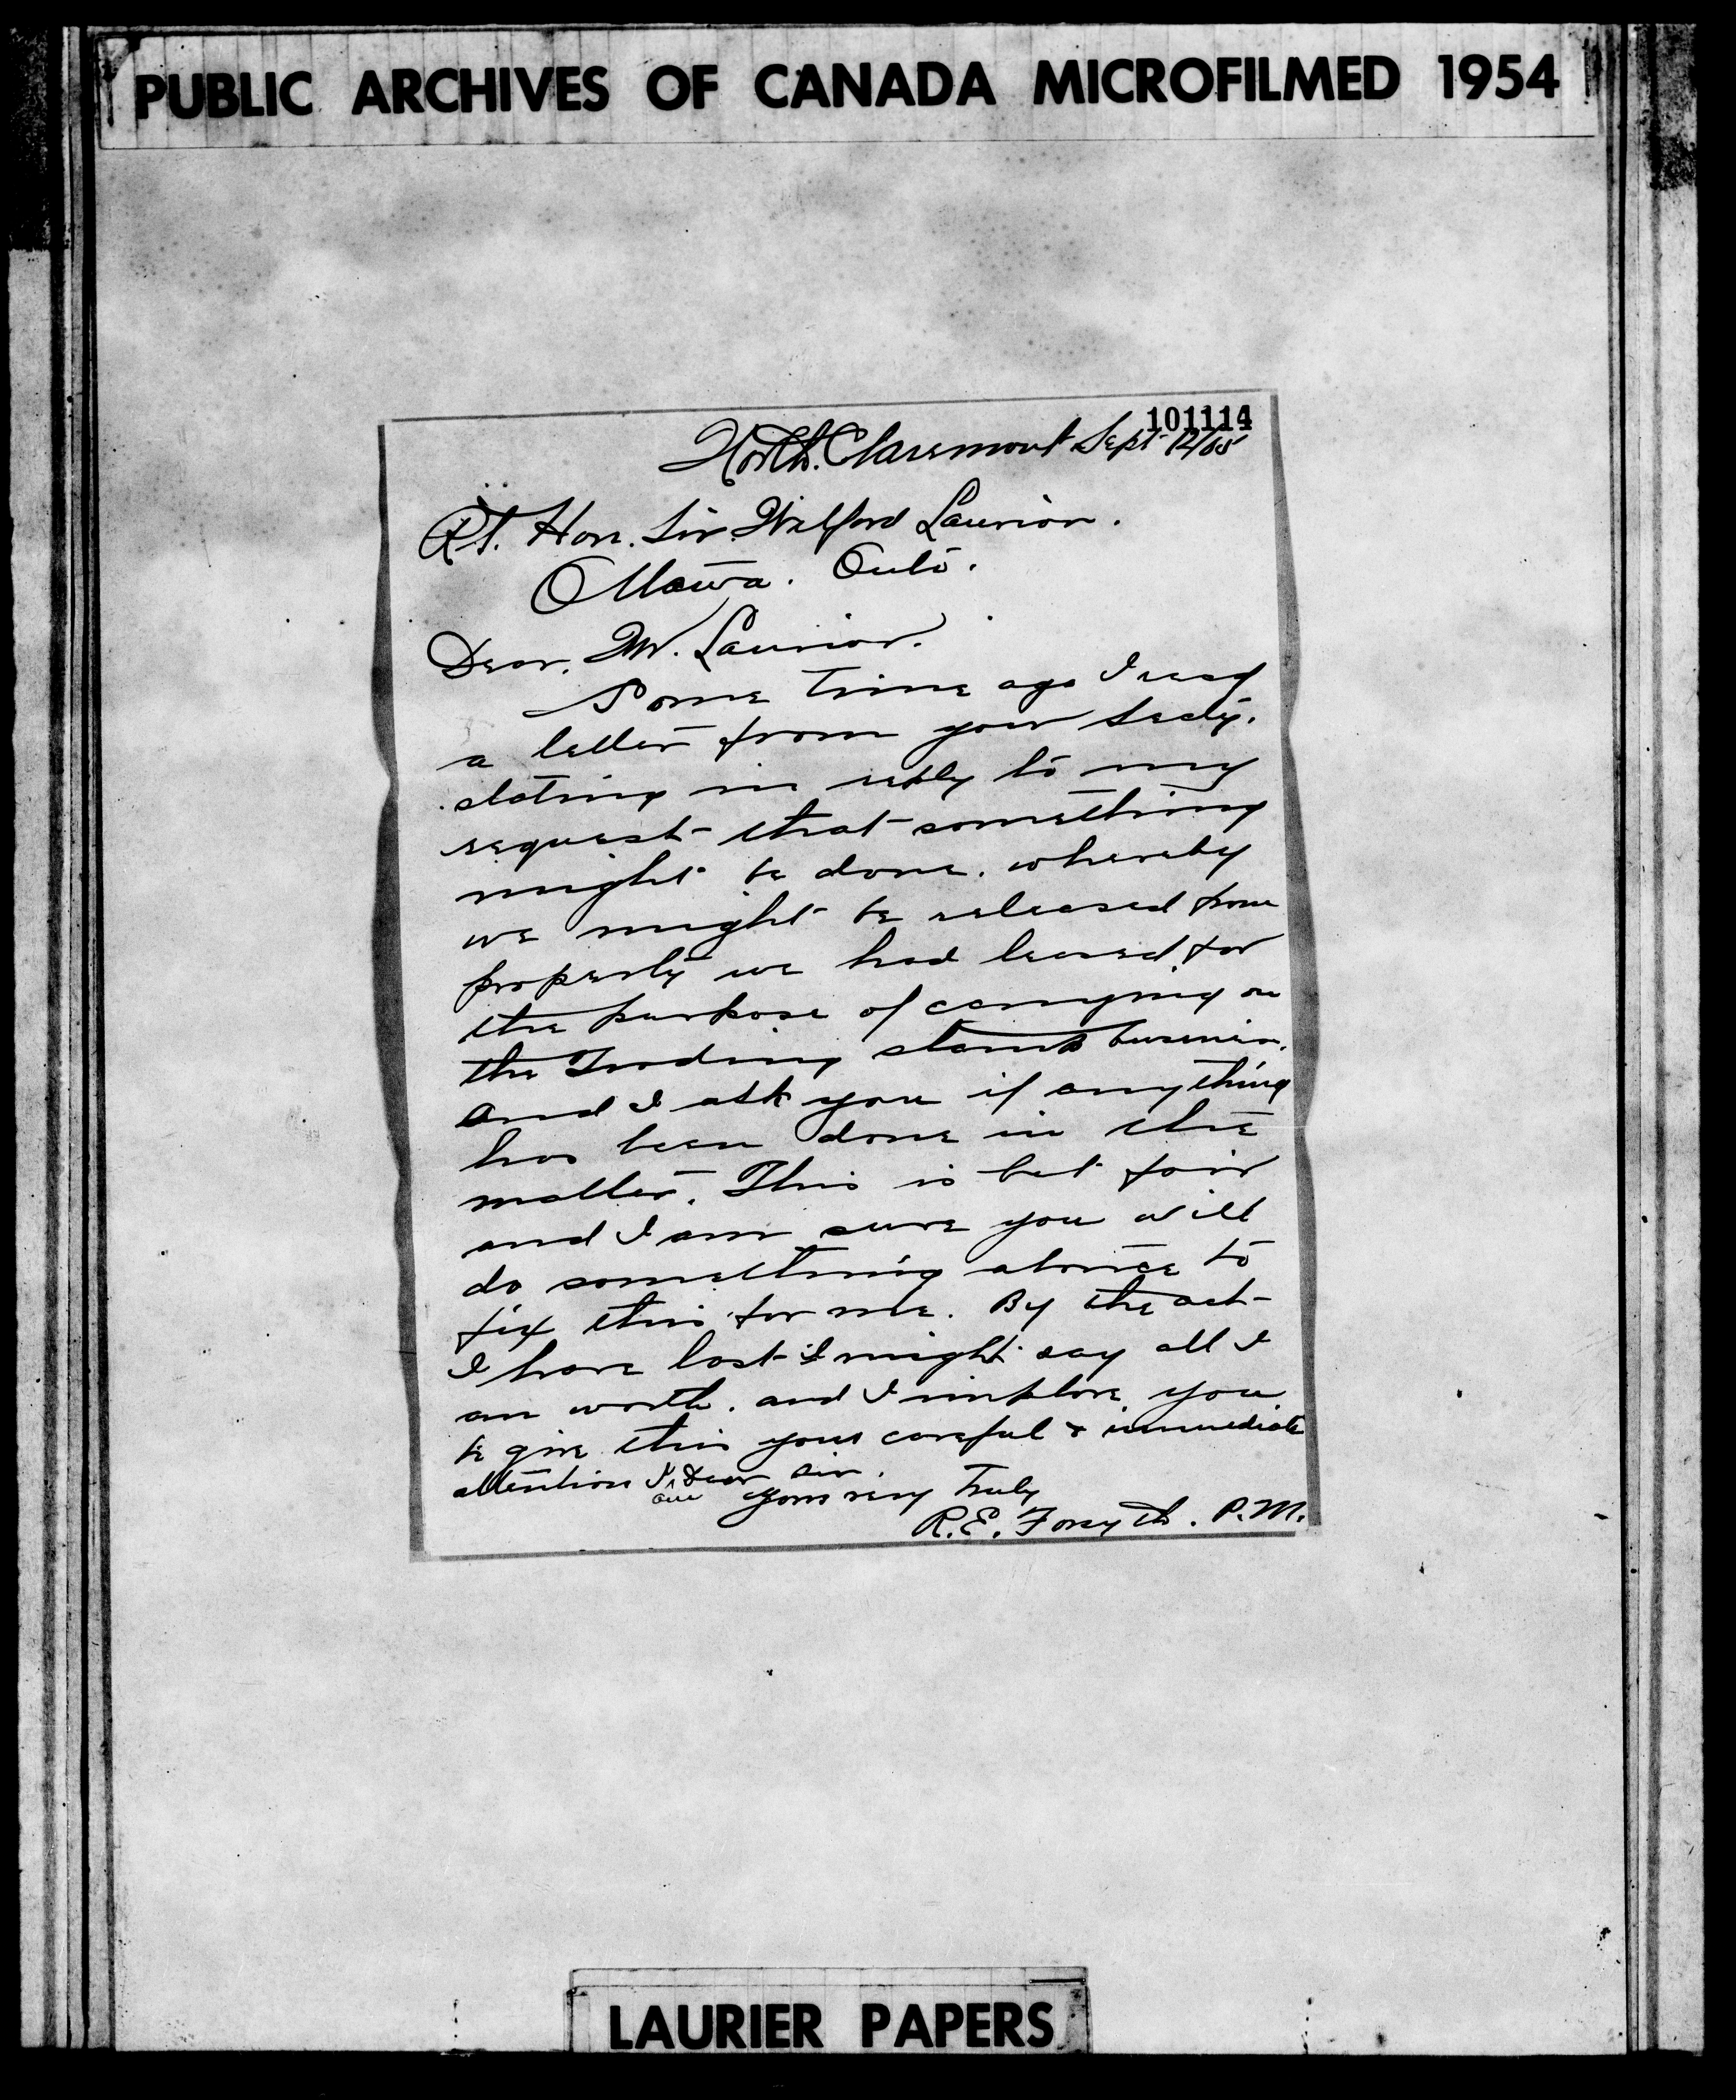 PUBLIC ARCHIVES OF CANADA MICROFILMED 1954
101114
North Claremont Sept 12/05
Rt. Hon. Sir Wilford Laurior.
Ottawa. Onto.
Dear. Mr. Laurior.
Some time ago I recd
a letter from your Secty.
stating in reply to my
request that something
might be done. whereby
we might be released from
property we had leased for
the purpose of carrying on
the Trading stamp business.
and I ask you if anything
has been done in the
matter. This is but fair
and I am sure you will
do something atonce to
fix this for me. By the act
I have lost I might say all I
am worth. and I implore you
to give this your careful & immediate
attention I am Dear Sir.
Yours very Truly
R.E. Forsyth. P.M.
LAURIER PAPERS